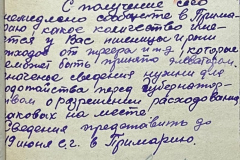 С получение сего
немедленно сообщите в Прима-
рию какое количество име-
ется у Вас пшеницы и ржи
отходов от трера и т.д. которые
может быть принято элеватором.
сведения нужны для
перед губернатор-
о разрешении расходовани
таковых на месте.
Сведения представить до
19 июня с.г. в Примарию.